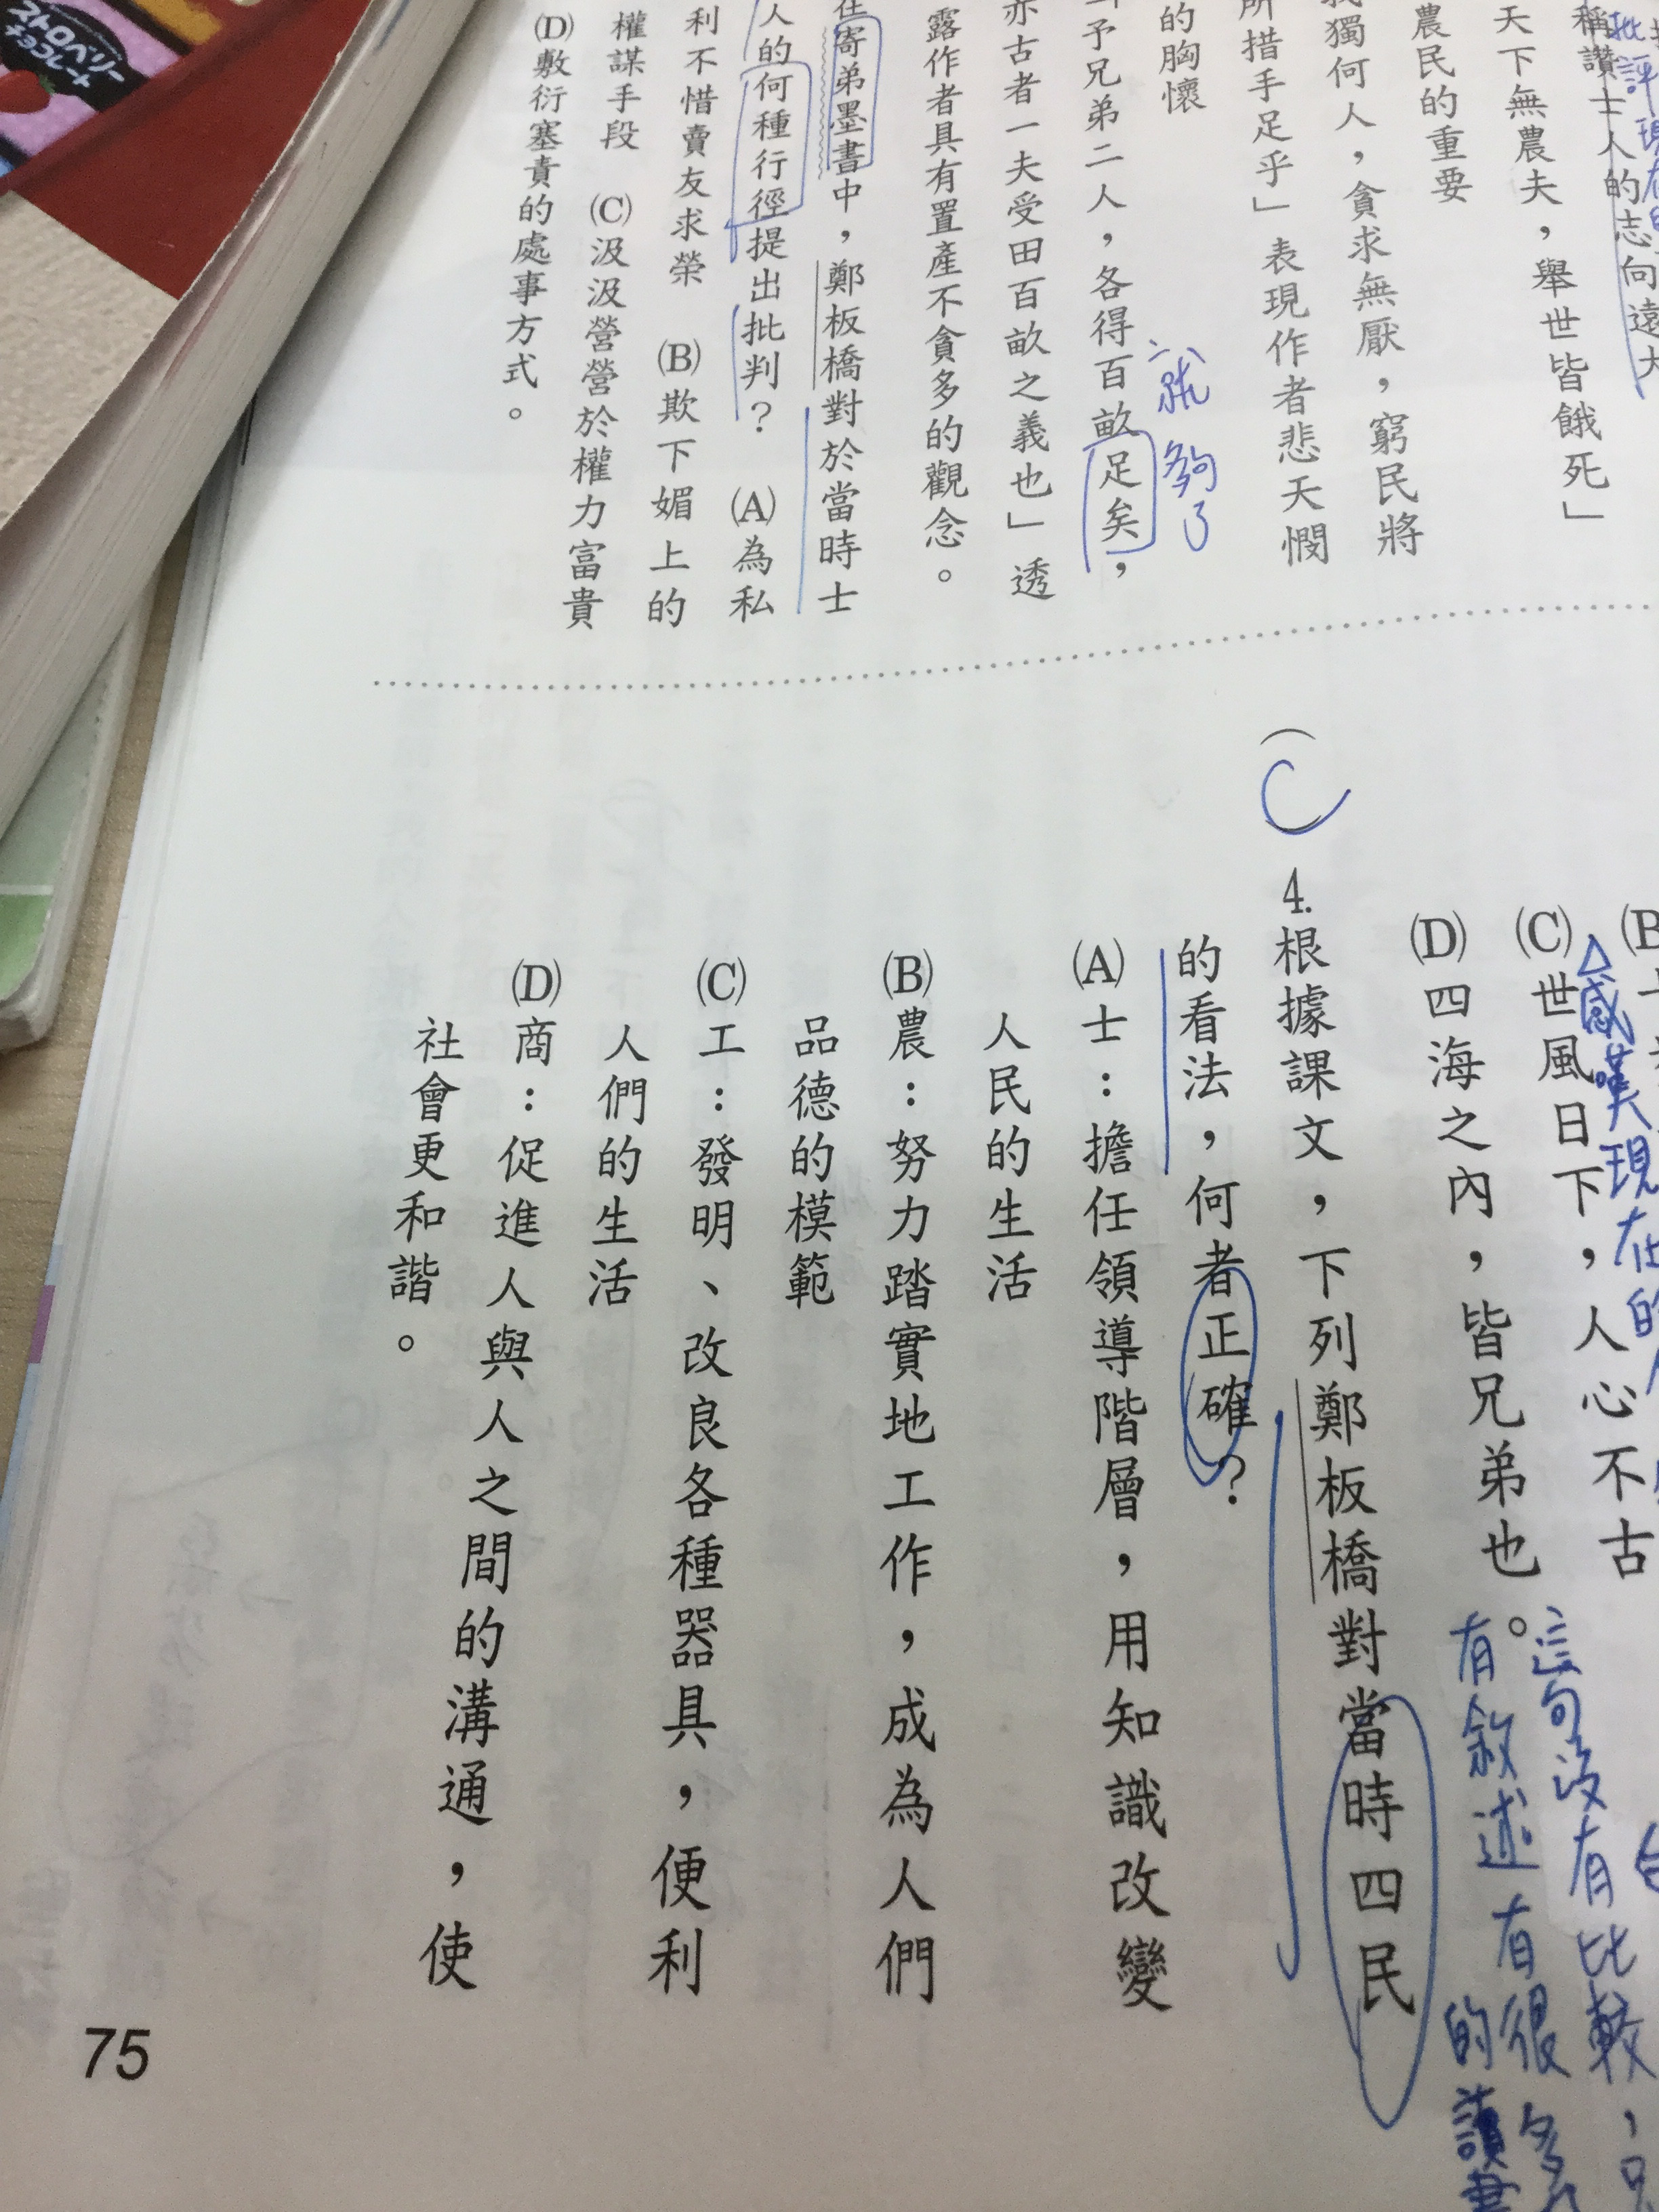 稱讚士人的志向遠大
天下無農夫，舉世皆餓死」
農民的重要
獨何人，貪求無厭，窮民將
所措手足乎」表現作者悲天憫
的胸懷
予兄弟二人，各得百畝足矣，
亦古者一夫受田百畝之義也」透
露作者具有置產不貪多的觀念。
就夠了
在寄弟墨書中，鄭板橋對於當時士
人的何種行徑提出批判？ (A)為私
利不惜賣友求榮 (B)欺下媚上的
權謀手段 (C)汲汲營營於權力富貴
(D)敷衍塞責的處事方式。
(C)世風日下，人心不古
△感嘆現在的
(D)四海之內，皆兄弟也。
這句沒有比較，只
有敘述有很多
的讀書
(C) 4.根據課文，下列鄭板橋對當時四民
的看法，何者正確？
(A)士：擔任領導階層，用知識改變
人民的生活
(B)農：努力踏實地工作，成為人們
品德的模範
(C)工：發明、改良各種器具，便利
人們的生活
(D)商：促進人與人之間的溝通，使
社會更和諧。
75